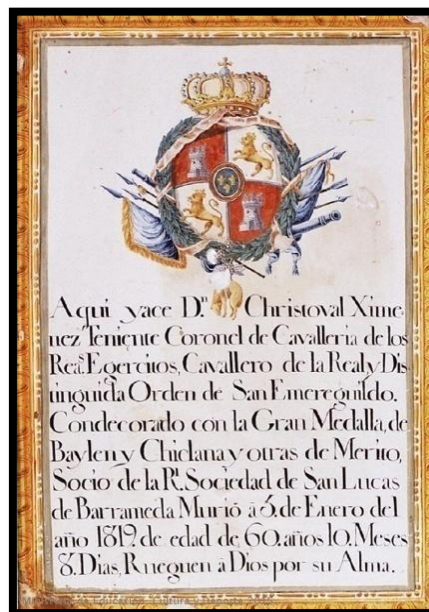 Aqui yace D.ⁿ Christoval Xime
nez Teniente Coronel de Cavalleria de los
Rea.ˢ Egercitos, Cavallero de la Real y Dis
tinguida Orden de San Emeregnildo.
Condecorado con la Gran Medalla, de
Baylen y Chiclana y otras de Merito,
Socio de la R.ˡ Sociedad de San Lucas
de Barrameda Murió á 6, de Enero del
año 1819, de edad de 60, años 10, Meses
8, Dias, Rueguen á Dios por su Alma.